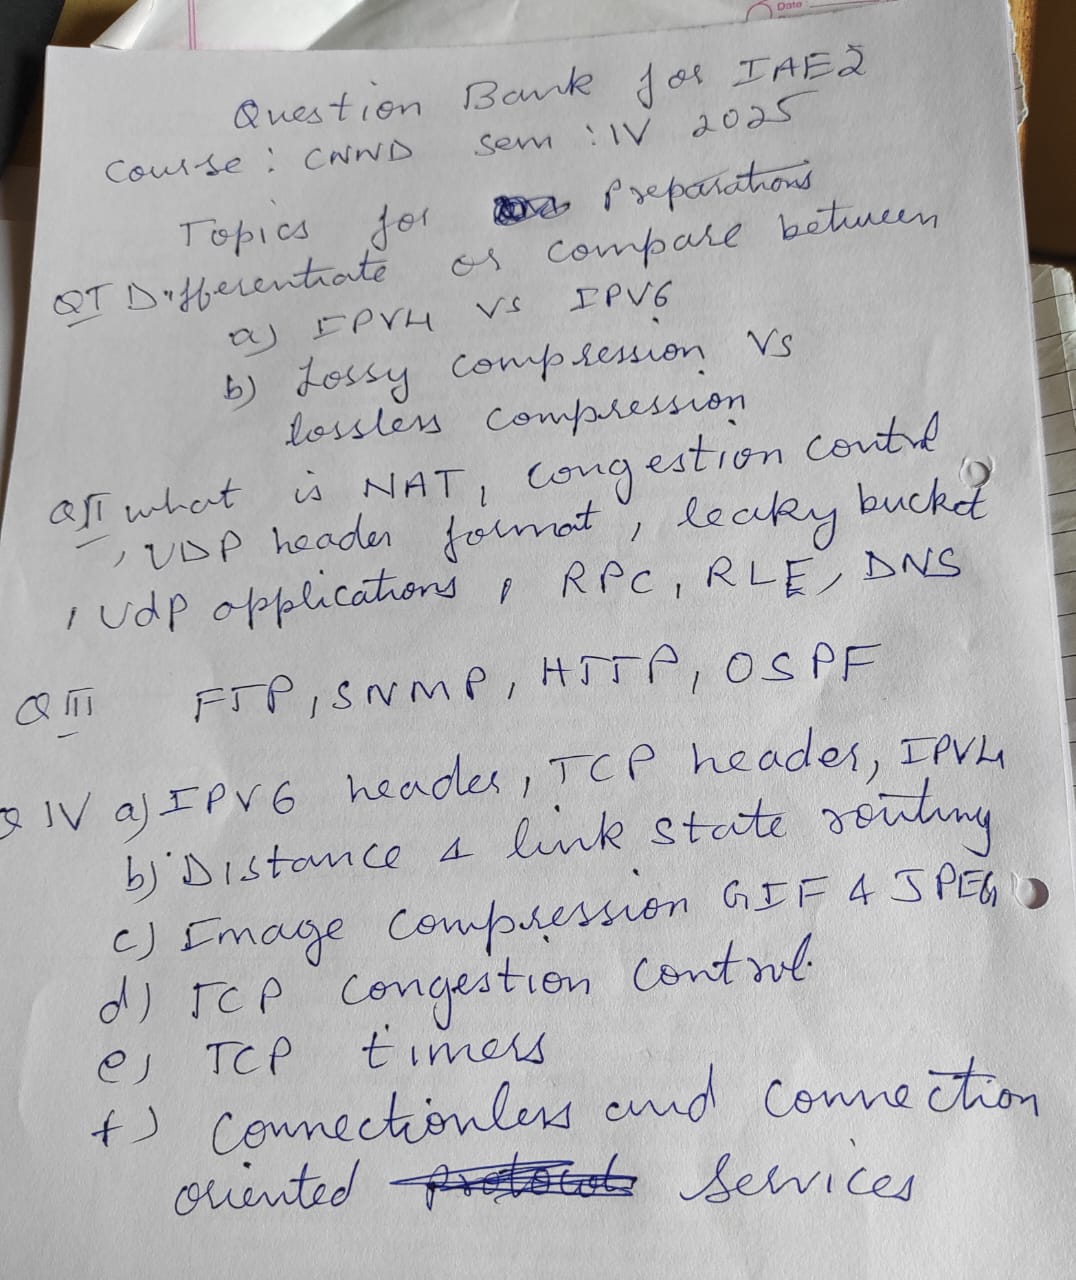 Date
Question Bank for IAE2
Course : CNND Sem : IV 2025
Topics for Preparations
QI Differentiate or compare between
a) IPV4 vs IPV6
b) Lossy compression vs
lossless compression
QII what is NAT, congestion control
, UDP header format, leaky bucket
, UdP applications, RPC, RLE, DNS
Q III FTP, SNMP, HTTP, OSPF
Q IV a) IPV6 header, TCP header, IPV4
b) Distance & link state routing
c) Image compression GIF & JPEG
d) TCP congestion control.
e) TCP timers
f) Connectionless and connection
oriented services